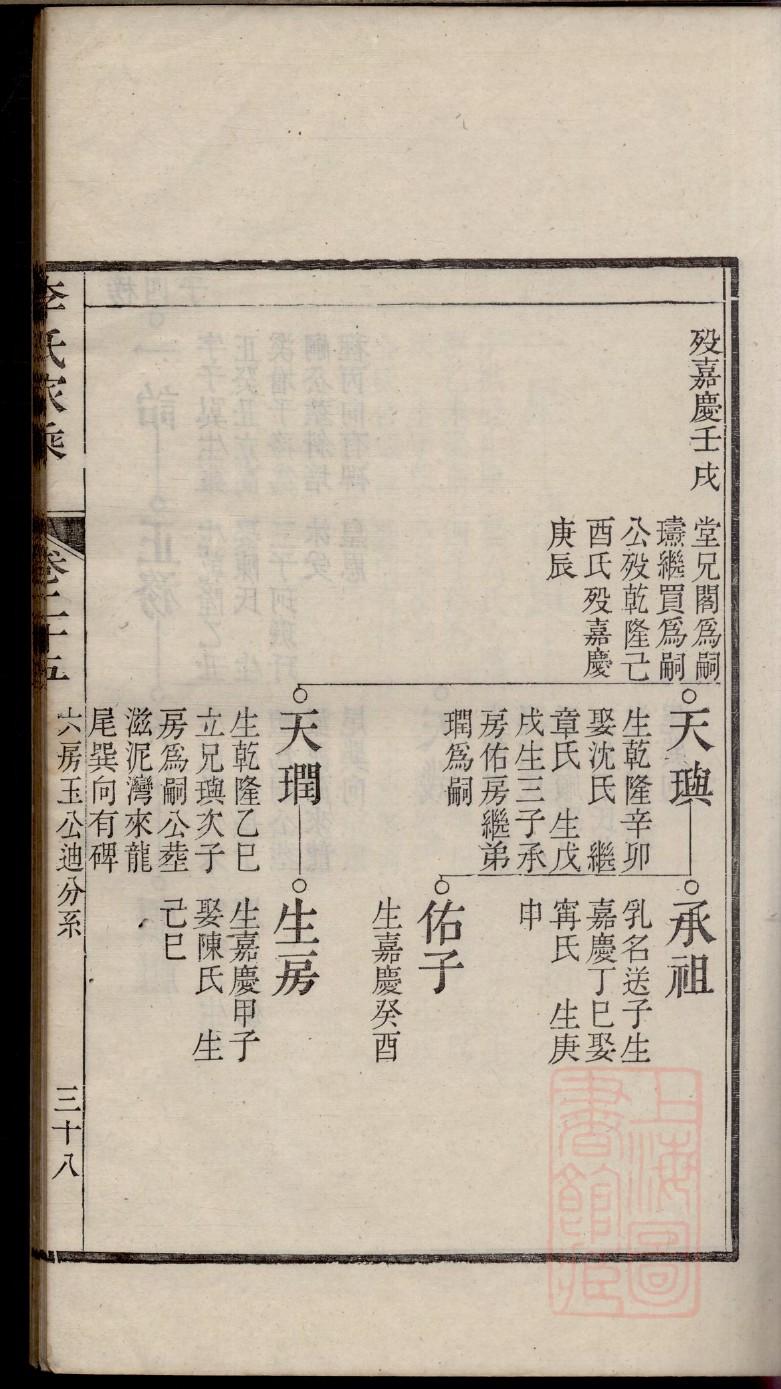 歿嘉慶壬戌
堂兄閣爲嗣
璹繼買爲嗣
公歿乾隆己
酉氏歿嘉慶
庚辰
天璵
生乾隆辛卯
娶沈氏 繼
章氏 生戊
戌生三子承
房佑房繼弟
璵爲嗣
承祖
乳名送子生
嘉慶丁巳娶
甯氏 生庚
申
佑子
生嘉慶癸酉
天璵
生乾隆乙巳
立兄璵次子
房爲嗣公塟
滋泥灣來龍
尾巽向有碑
生房
生嘉慶甲子
娶陳氏 生
己巳
李氏家乘
卷二十五
六房玉公迪分系
三十八
上海圖書館藏